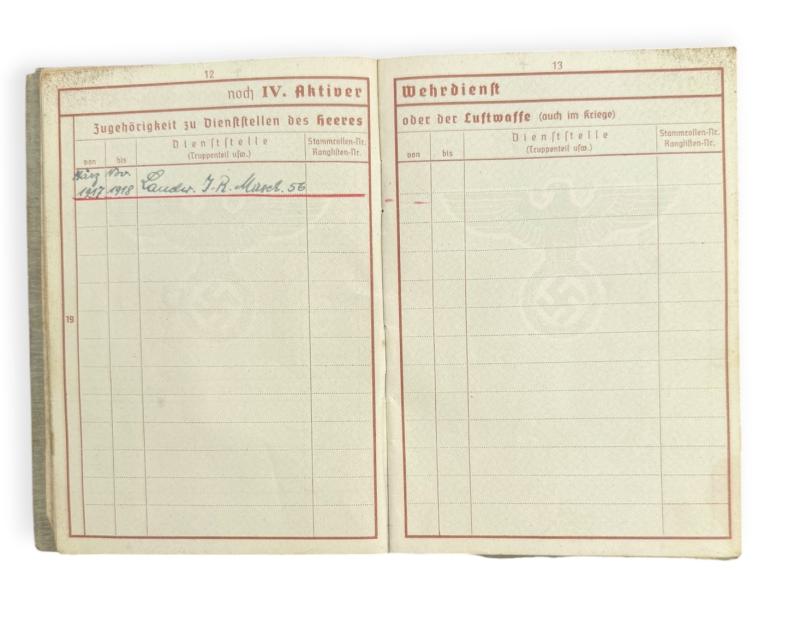 12
noch IV. Aktiver
Zugehörigkeit zu Dienststellen des Heeres
von
bis
Dienststelle
(Truppenteil usw.)
Stammrollen-Nr.
Ranglisten-Nr.
März
1917
1918
Landw. I. R. 56
19
13
Wehrdienst
oder der Luftwaffe (auch im Kriege)
von
bis
Dienststelle
(Truppenteil usw.)
Stammrollen-Nr.
Ranglisten-Nr.